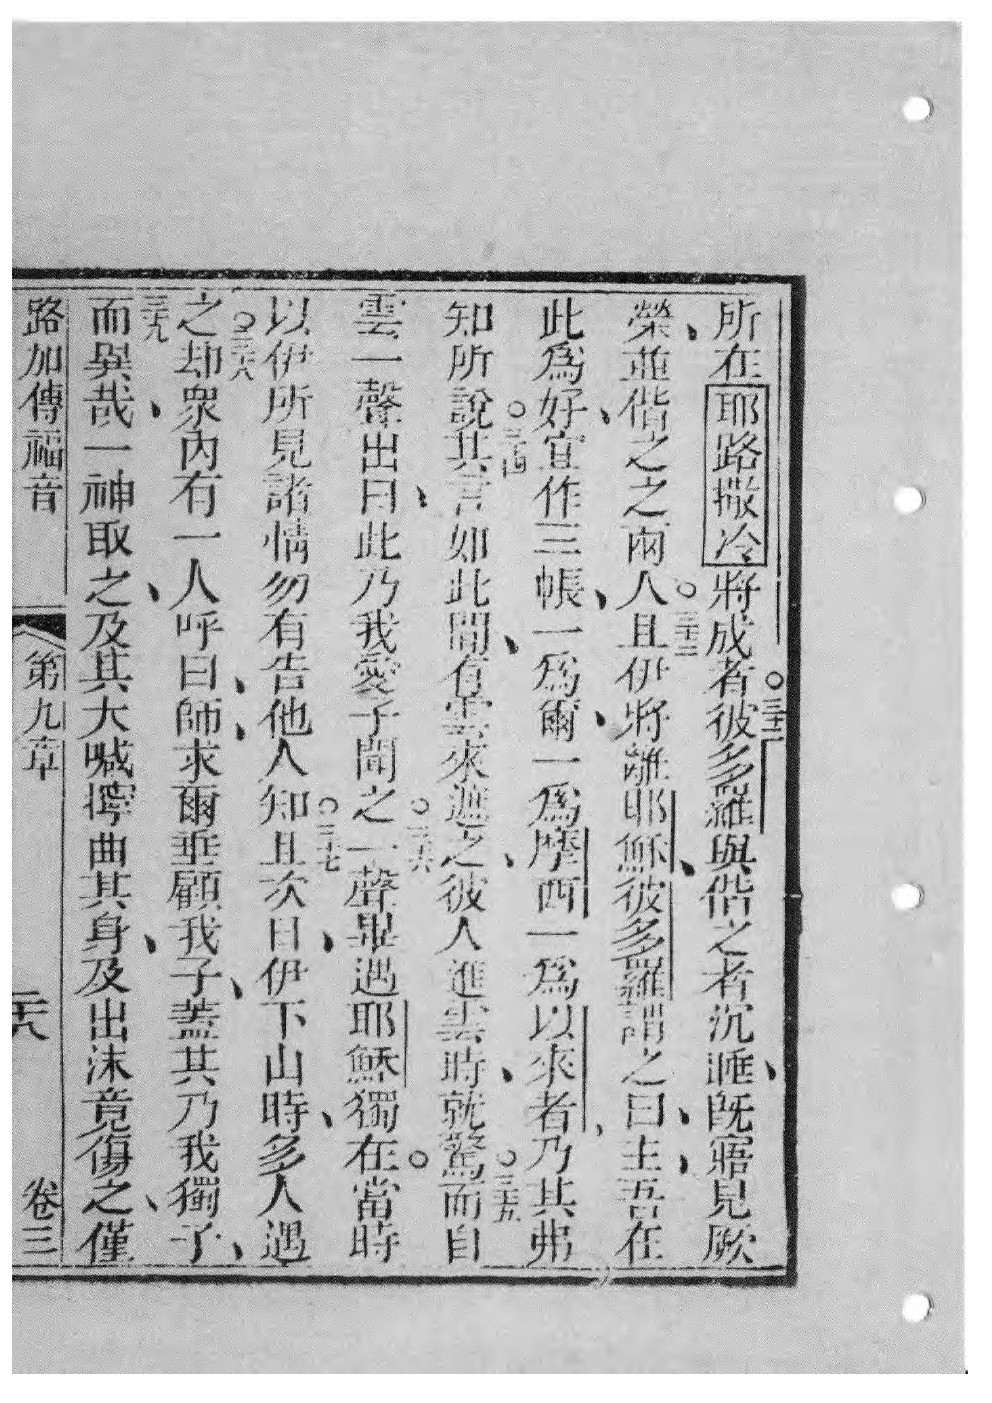 所在耶路撒冷將成者○三十二彼多羅與偕之者沉睡、既寤見厥
榮、並偕之之兩人○三十三且伊將離耶穌、彼多羅謂之曰、主、吾在
此為好、宜作三帳、一為爾、一為摩西一為以來者、乃其弗
知所說○三十四其言如此間、有雲來遮之、彼人進雲時、就驚○三十五而自
雲一聲出曰、此乃我愛子聞之○三十六一聲畢遇耶穌獨在○當時
以伊所見諸情勿有告他人知○三十七且次日、伊下山時、多人遇
之○三十八却衆內有一人呼曰、師、求爾垂顧我子、蓋其乃我獨子、
三十九而㒷哉、一神取之、及其大喊擰曲其身、及出沫竟傷之、僅
路加傳福音 第九章 二十八 卷三